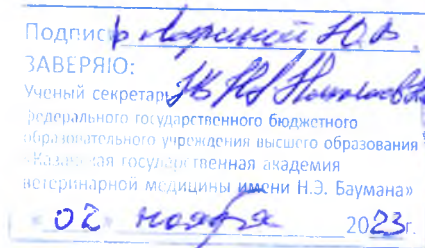 Подпись Лариной Ю.В.
ЗАВЕРЯЮ:
Ученый секретарь
федерального государственного бюджетного
образовательного учреждения высшего образования
«Казанская государственная академия
ветеринарной медицины имени Н.Э. Баумана»
02 ноября 2023г.